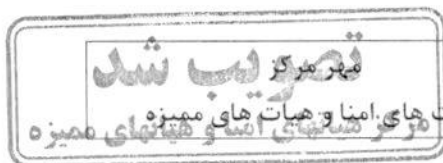 تصویب شد
مهر مرکز
ت های امنا و هیات های ممیزه
مرکز هیئتهای امنا و هیئتهای ممیزه